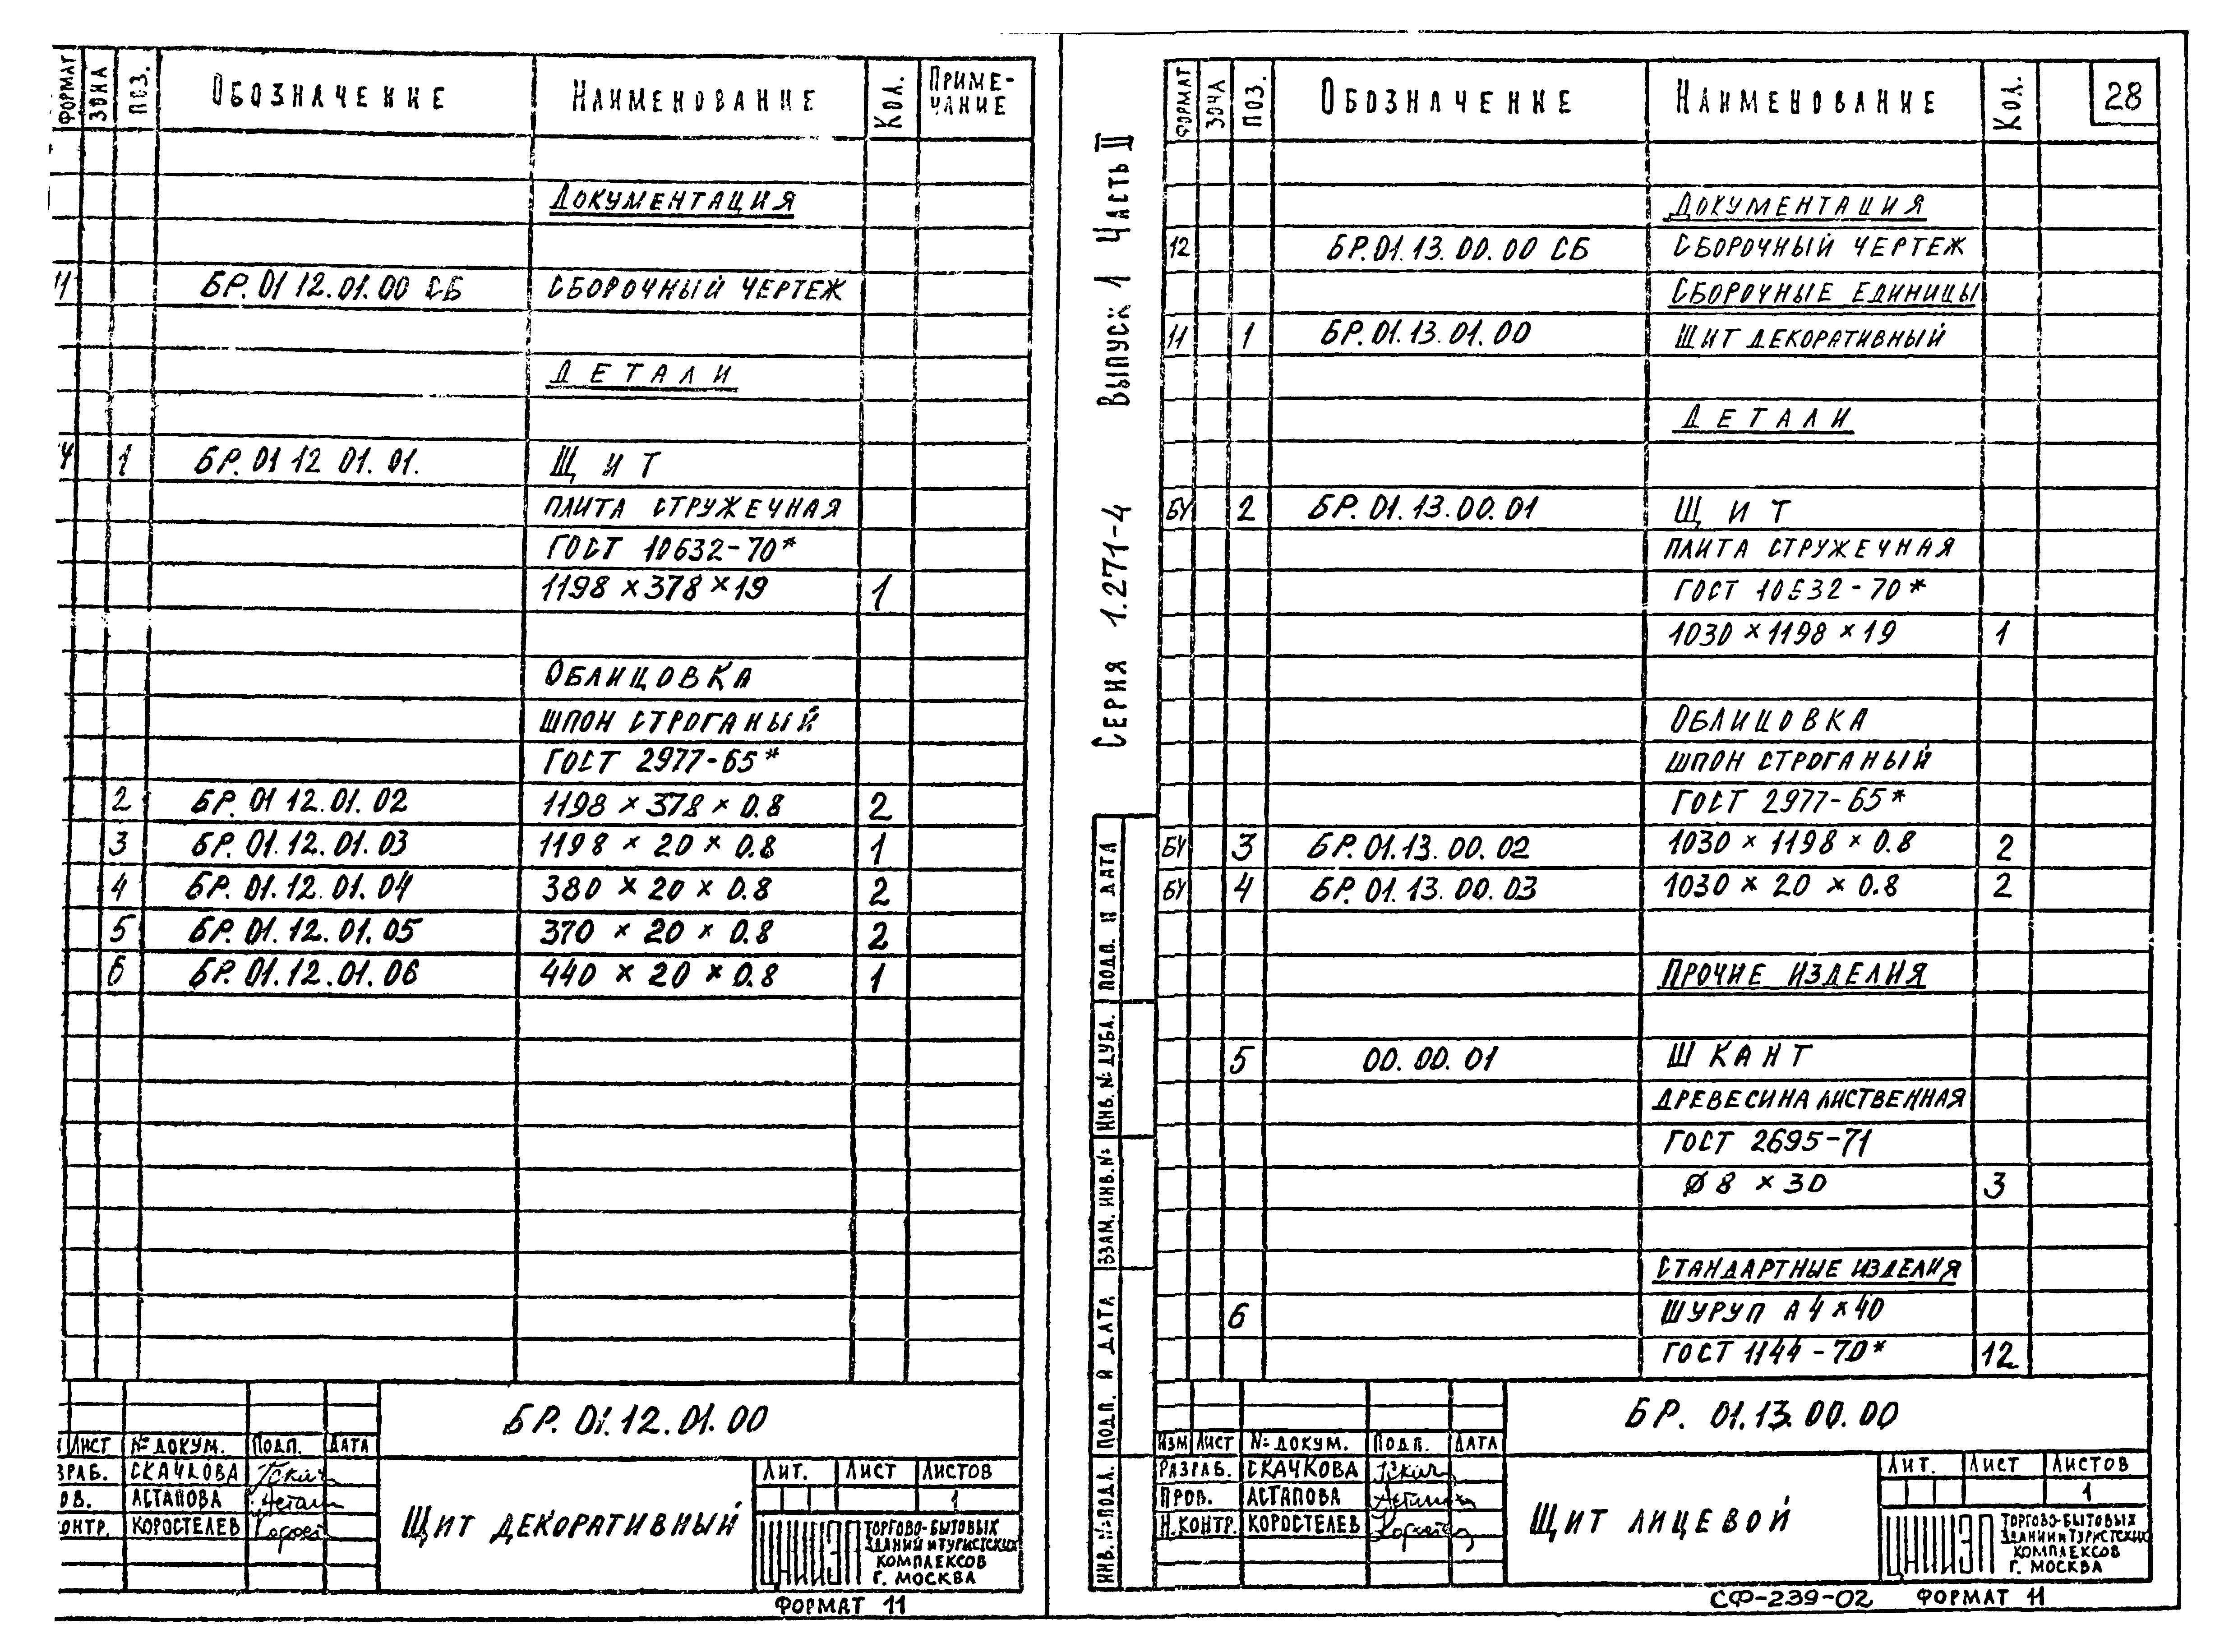 ФОРМАТ ЗОНА ПОЗ. ОБОЗНАЧЕНИЕ НАИМЕНОВАНИЕ КОЛ. ПРИМЕ-
ЧАНИЕ
ДОКУМЕНТАЦИЯ
БР.01 12.01.00 СБ СБОРОЧНЫЙ ЧЕРТЕЖ
ДЕТАЛИ
1 БР.01 12 01.01. ЩИТ
ПЛИТА СТРУЖЕЧНАЯ
ГОСТ 10632-70*
1198 × 378 × 19 1
ОБЛИЦОВКА
ШПОН СТРОГАНЫЙ
ГОСТ 2977-65*
2 БР.01 12.01.02 1198 × 378 × 0.8 2
3 БР.01.12.01.03 1198 × 20 × 0.8 1
4 БР.01.12.01.04 380 × 20 × 0.8 2
5 БР.01.12.01.05 370 × 20 × 0.8 2
6 БР.01.12.01.06 440 × 20 × 0.8 1
БР.01.12.01.00
ЛИСТ № ДОКУМ. ПОДП. ДАТА
ЗРАБ. СКАЧКОВА
ОВ. АСТАПОВА
КОНТР. КОРОСТЕЛЕВ
ЩИТ ДЕКОРАТИВНЫЙ
ЛИТ. ЛИСТ ЛИСТОВ
1
ЦНИИЭП ТОРГОВО-БЫТОВЫХ
ЗДАНИЙ И ТУРИСТСКИХ
КОМПЛЕКСОВ
Г. МОСКВА
ФОРМАТ 11
СЕРИЯ 1.271-4 ВЫПУСК 1 ЧАСТЬ II
ФОРМАТ ЗОНА ПОЗ. ОБОЗНАЧЕНИЕ НАИМЕНОВАНИЕ КОЛ. 28
ДОКУМЕНТАЦИЯ
12 БР.01.13.00.00 СБ СБОРОЧНЫЙ ЧЕРТЕЖ
СБОРОЧНЫЕ ЕДИНИЦЫ
11 1 БР.01.13.01.00 ЩИТ ДЕКОРАТИВНЫЙ
ДЕТАЛИ
БЧ 2 БР.01.13.00.01 ЩИТ
ПЛИТА СТРУЖЕЧНАЯ
ГОСТ 10632-70*
1030 × 1198 × 19 1
ОБЛИЦОВКА
ШПОН СТРОГАНЫЙ
ГОСТ 2977-65*
БЧ 3 БР.01.13.00.02 1030 × 1198 × 0.8 2
БЧ 4 БР.01.13.00.03 1030 × 20 × 0.8 2
ПРОЧИЕ ИЗДЕЛИЯ
5 00.00.01 ШКАНТ
ДРЕВЕСИНА ЛИСТВЕННАЯ
ГОСТ 2695-71
Ø 8 × 30 3
СТАНДАРТНЫЕ ИЗДЕЛИЯ
6 ШУРУП А4×40
ГОСТ 1144-70* 12
ИНВ.№ ПОДЛ. ПОДП. И ДАТА ВЗАМ. ИНВ.№ ИНВ.№ ДУБЛ. ПОДП. И ДАТА
БР. 01.13.00.00
ИЗМ ЛИСТ № ДОКУМ. ПОДП. ДАТА
РАЗРАБ. СКАЧКОВА
ПРОВ. АСТАПОВА
Н.КОНТР. КОРОСТЕЛЕВ
ЩИТ ЛИЦЕВОЙ
ЛИТ. ЛИСТ ЛИСТОВ
1
ЦНИИЭП ТОРГОВО-БЫТОВЫХ
ЗДАНИЙ И ТУРИСТСКИХ
КОМПЛЕКСОВ
Г. МОСКВА
СФ-239-02 ФОРМАТ 11